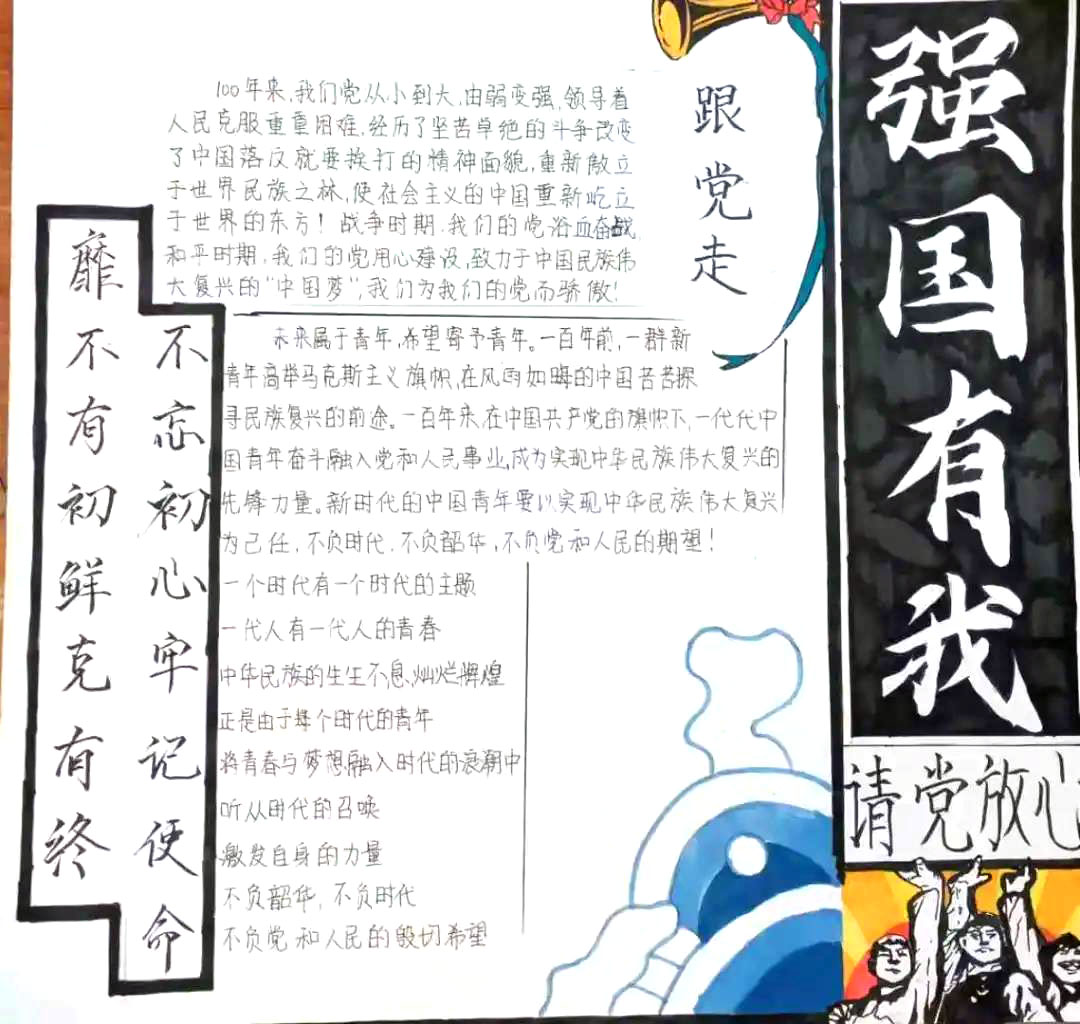 强国有我
请党放心
跟党走
100年来,我们党从小到大,由弱变强,领导着
人民克服重重困难,经历了坚苦卓绝的斗争改变
了中国落后就要挨打的精神面貌,重新傲立
于世界民族之林,使社会主义的中国重新屹立
于世界的东方!战争时期,我们的党浴血奋战,
和平时期,我们的党用心建设,致力于中国民族伟
大复兴的“中国梦”,我们为我们的党而骄傲!
未来属于青年,希望寄予青年。一百年前,一群新
青年高举马克斯主义旗帜,在风雨如晦的中国苦苦探
寻民族复兴的前途。一百年来,在中国共产党的旗帜下,一代代中
国青年奋斗融入党和人民事业,成为实现中华民族伟大复兴的
先锋力量。新时代的中国青年要以实现中华民族伟大复兴
为己任,不负时代,不负韶华,不负党和人民的期望!
一个时代有一个时代的主题
一代人有一代人的青春
中华民族的生生不息,灿烂辉煌
正是由于每个时代的青年
将青春与梦想融入时代的浪潮中
听从时代的召唤
激发自身的力量
不负韶华,不负时代
不负党和人民的殷切希望
不忘初心牢记使命
靡不有初鲜克有终